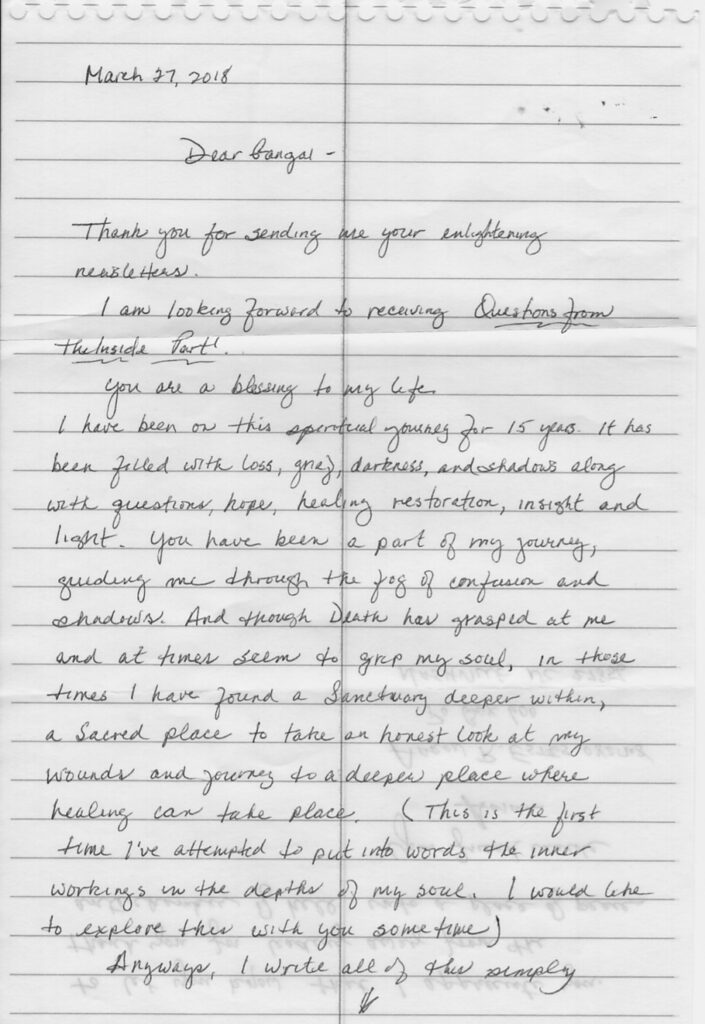 March 27, 2018
Dear Gangaji -
Thank you for sending me your enlightening
newsletters.
I am looking forward to receiving Questions from
the Inside Part 1.
You are a blessing to my life.
I have been on this spiritual journey for 15 years. It has
been filled with loss, grief, darkness, and shadows along
with questions, hope, healing restoration, insight and
light. You have been a part of my journey,
guiding me through the fog of confusion and
shadows. And though Death has grasped at me
and at times seem to grip my soul, in those
times I have found a Sanctuary deeper within,
a Sacred place to take an honest look at my
wounds and journey to a deeper place where
healing can take place. (This is the first
time I've attempted to put into words the inner
workings in the depths of my soul. I would like
to explore this with you sometime)
Anyways, I write all of this simply